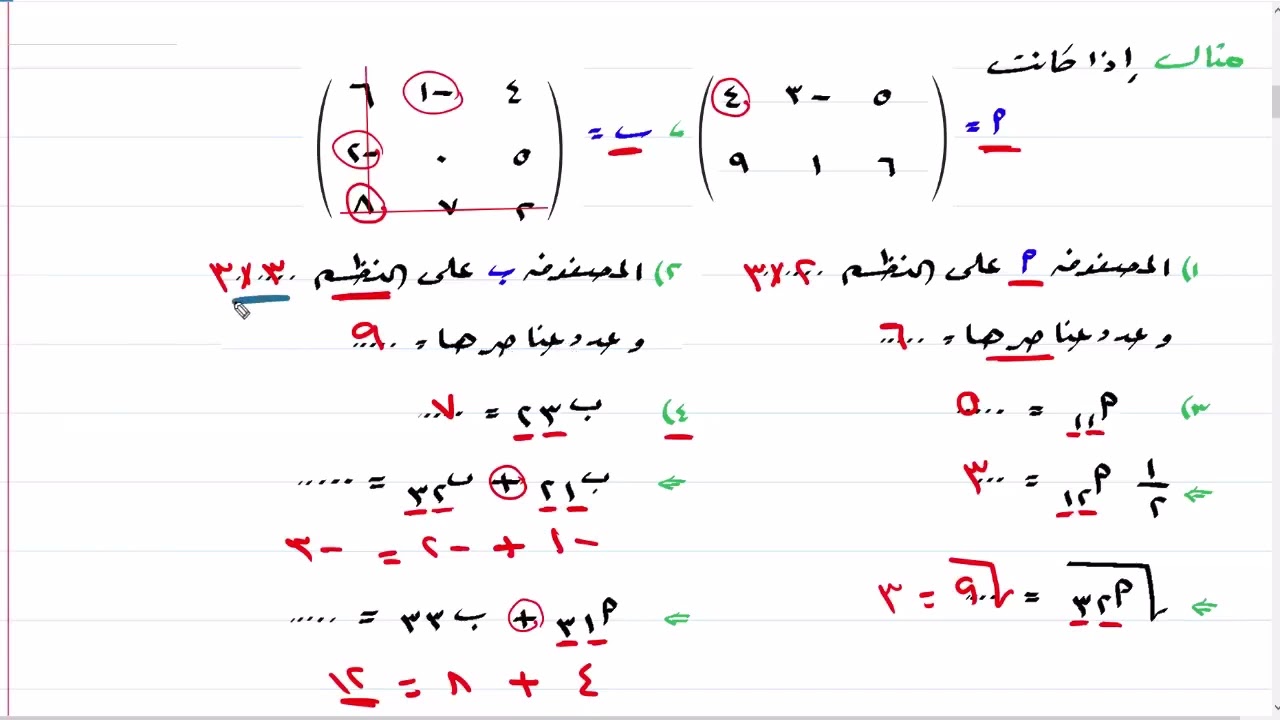 مثال إذا كانت
م = (٥ -٣ ٤
٦ ١ ٩) ، ب = (٤ -١ ٦
٥ ٠ -٢
٢ ٧ ٨)
١) المصفوفة م على النظم ٢×٣
وعدد عناصرها = ٦
٢) المصفوفة ب على النظم ٣×٣
وعدد عناصرها = ٩
٣) م١١ = ٥
⇐ ١/٢ م٢١ = ٣
⇐ √م٢٣ = √٩ = ٣
٤) ب٣٢ = ٧
⇐ ب١٢ + ب٢٣ = .....
-١ + -٢ = -٣
⇐ م١٣ + ب٣٣ = .....
٤ + ٨ = ١٢